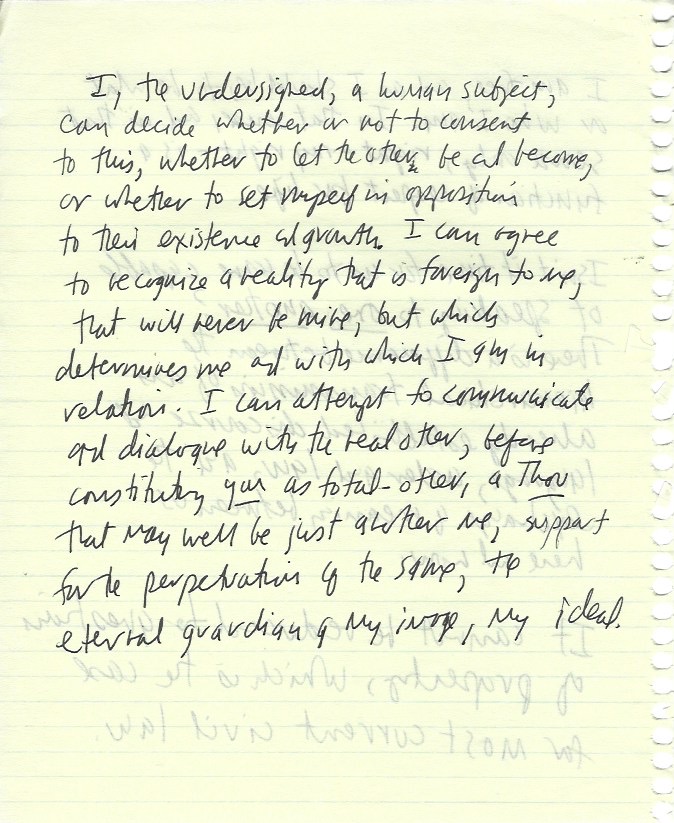 I, the undersigned, a human subject,
can decide whether or not to consent
to this, whether to let the other be and become,
or whether to set myself in opposition
to their existence and growth. I can agree
to recognize a reality that is foreign to me,
that will never be mine, but which
determines me and with which I am in
relation. I can attempt to communicate
and dialogue with the real other, before
constituting you as total-other, a Thou
that may well be just another me, support
for the perpetuation of the same, the
eternal guardian of my image, my ideal.